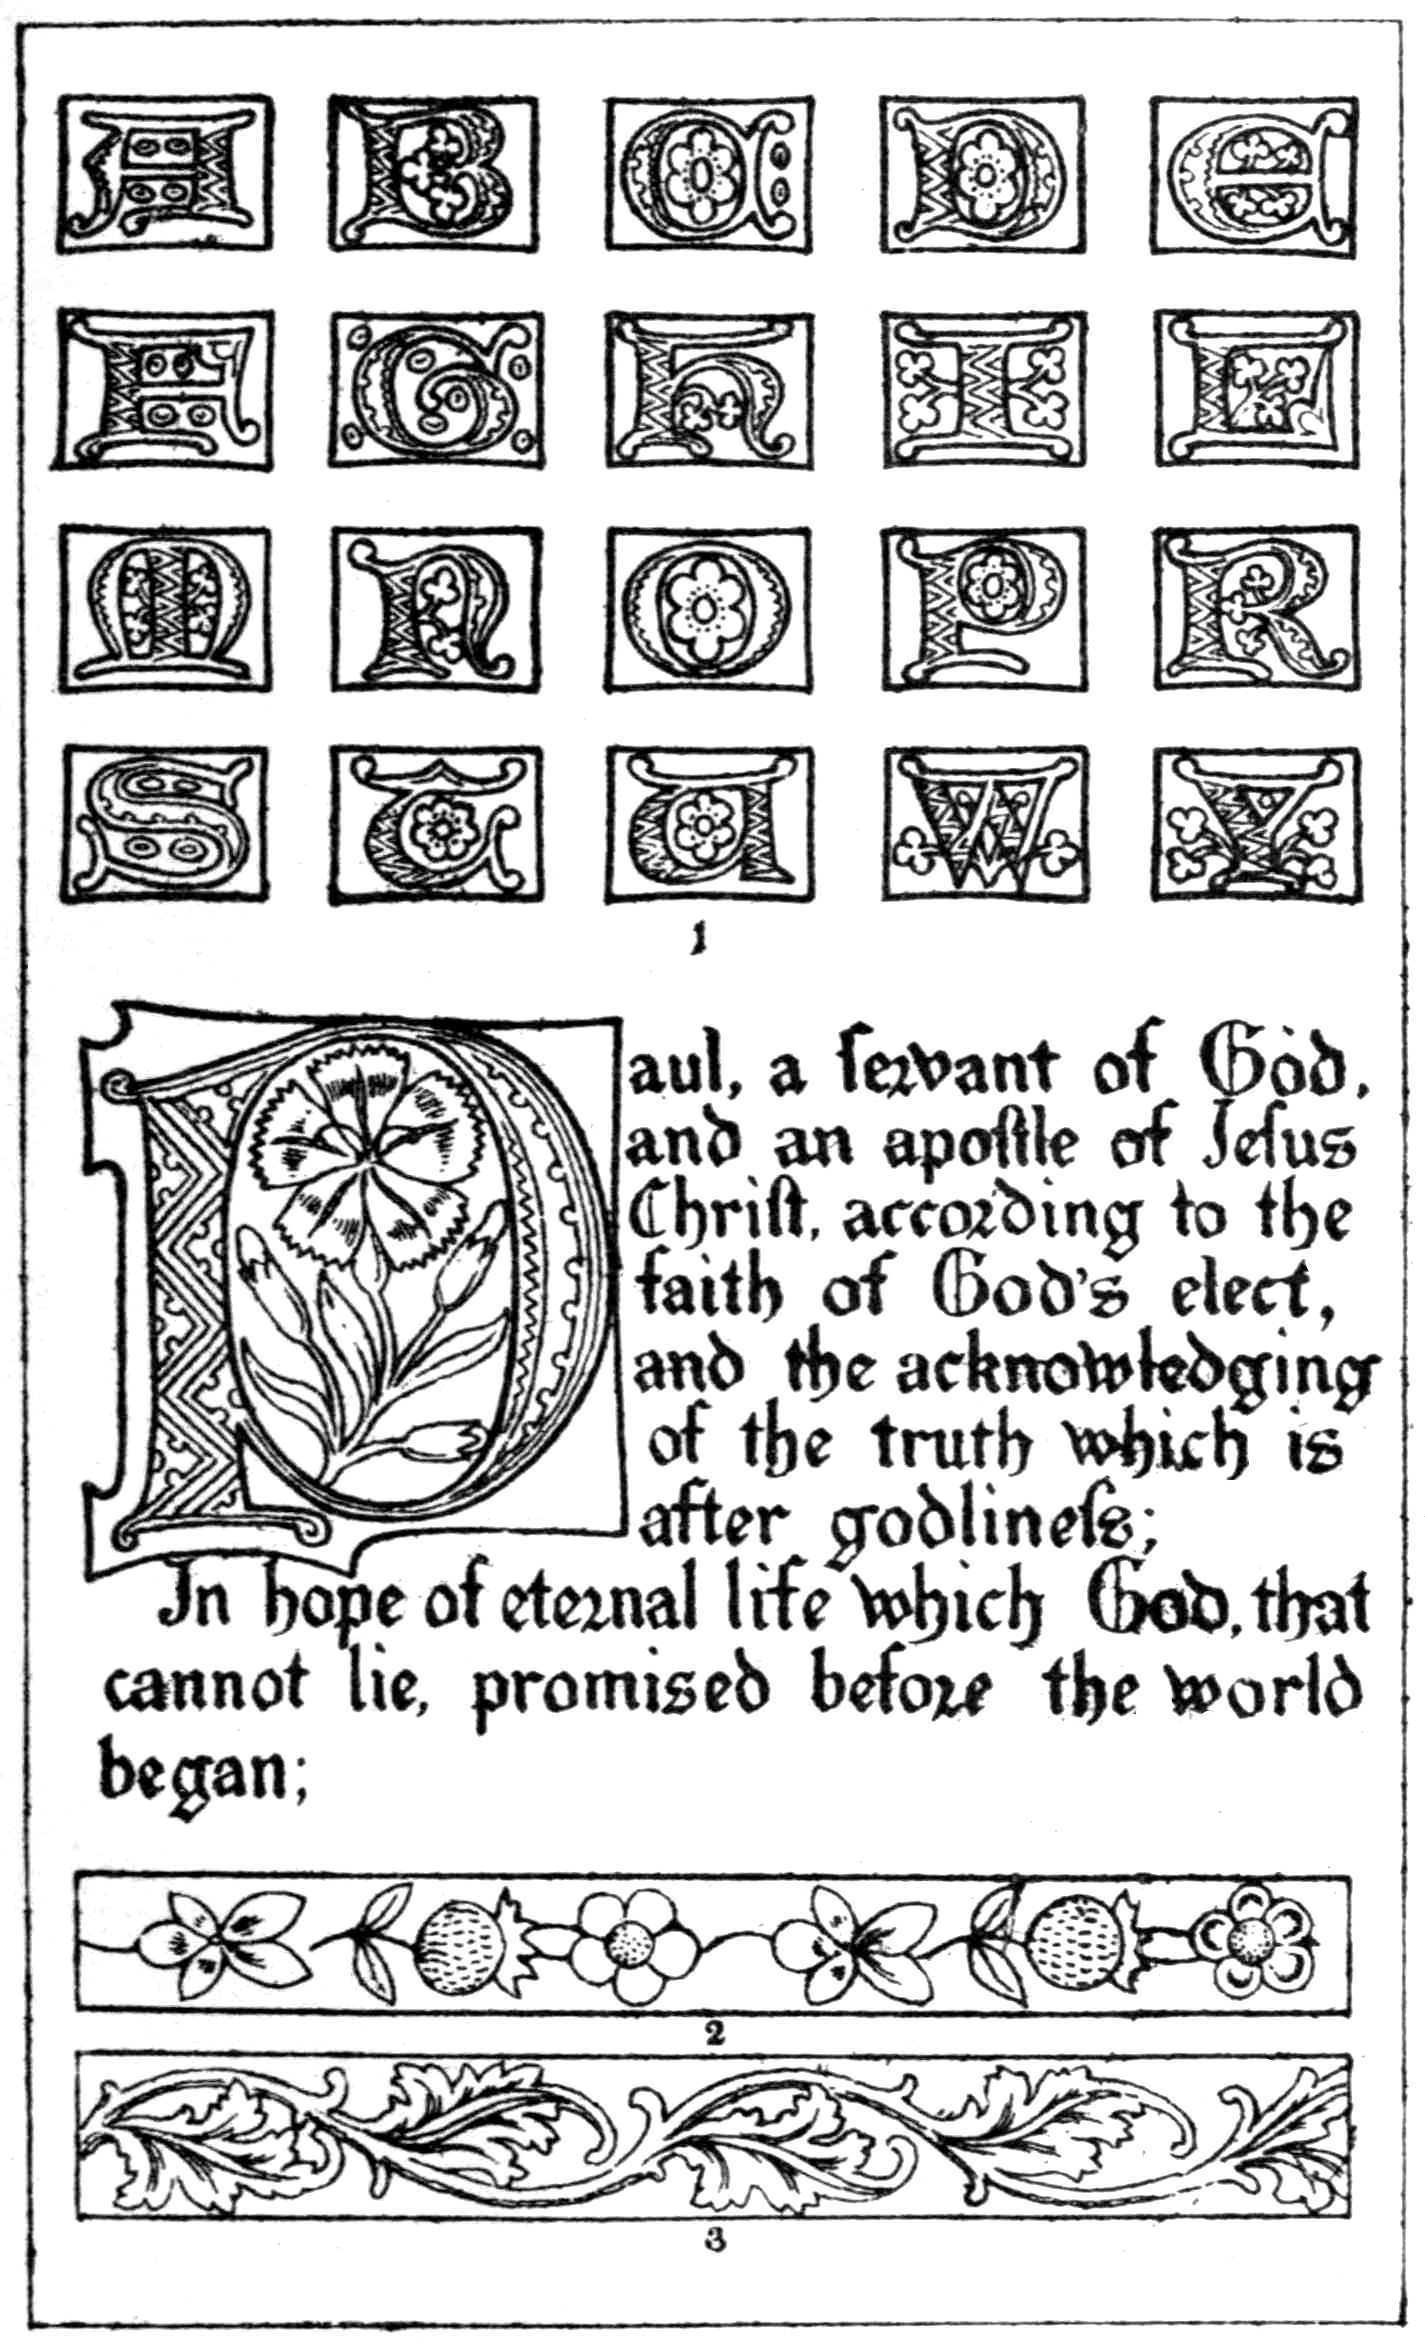 A B C D E
F G H I L
M N O P R
S T U W Y
1
Paul, a ſervant of God,
and an apoſtle of Jeſus
Chriſt, according to the
faith of God's elect,
and the acknowledging
of the truth which is
after godlineſs;
In hope of eternal life which God, that
cannot lie, promised before the world
began;
2
3